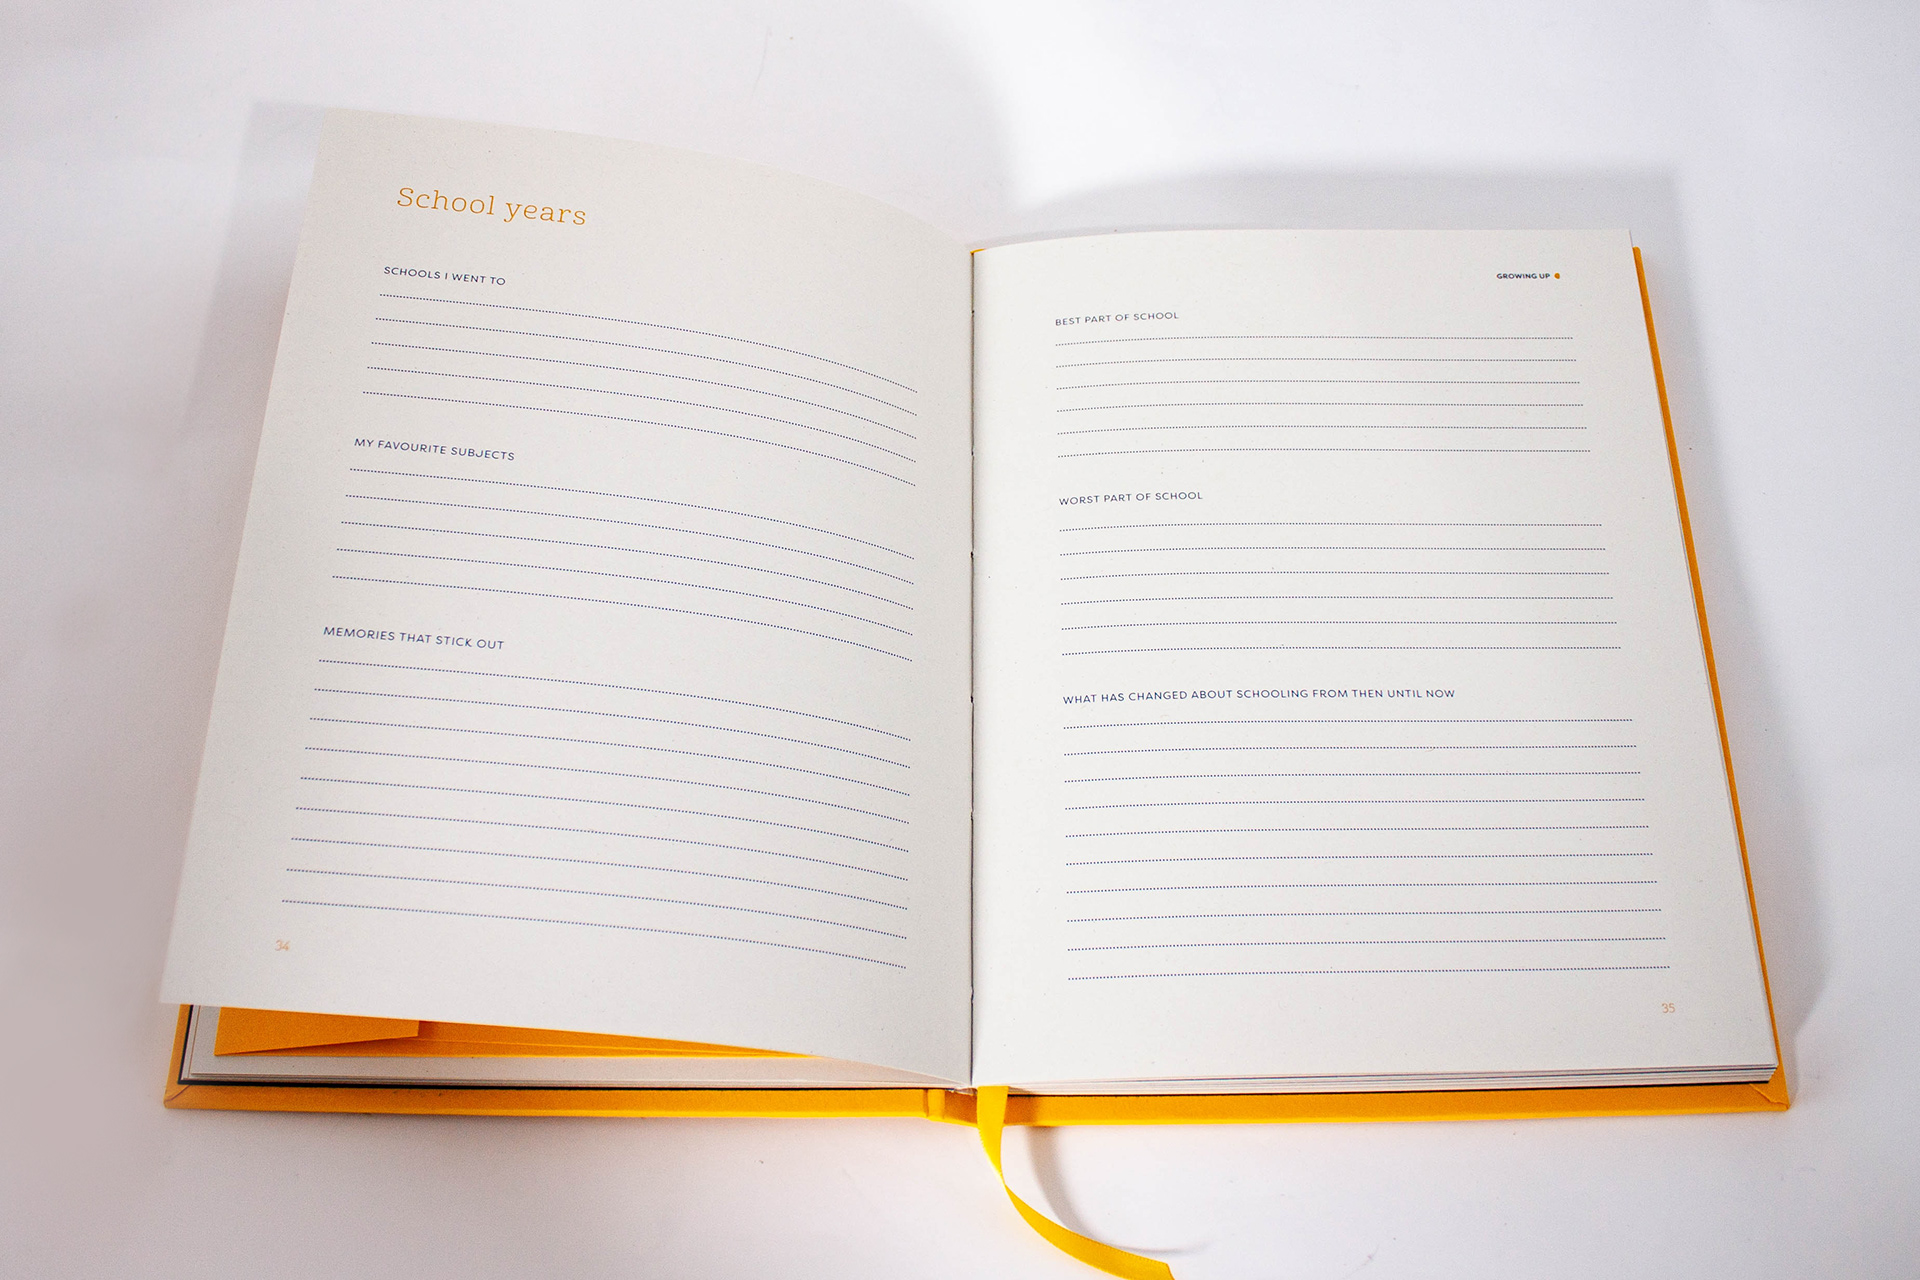 School years
SCHOOLS I WENT TO
MY FAVOURITE SUBJECTS
MEMORIES THAT STICK OUT
34
GROWING UP
BEST PART OF SCHOOL
WORST PART OF SCHOOL
WHAT HAS CHANGED ABOUT SCHOOLING FROM THEN UNTIL NOW
35